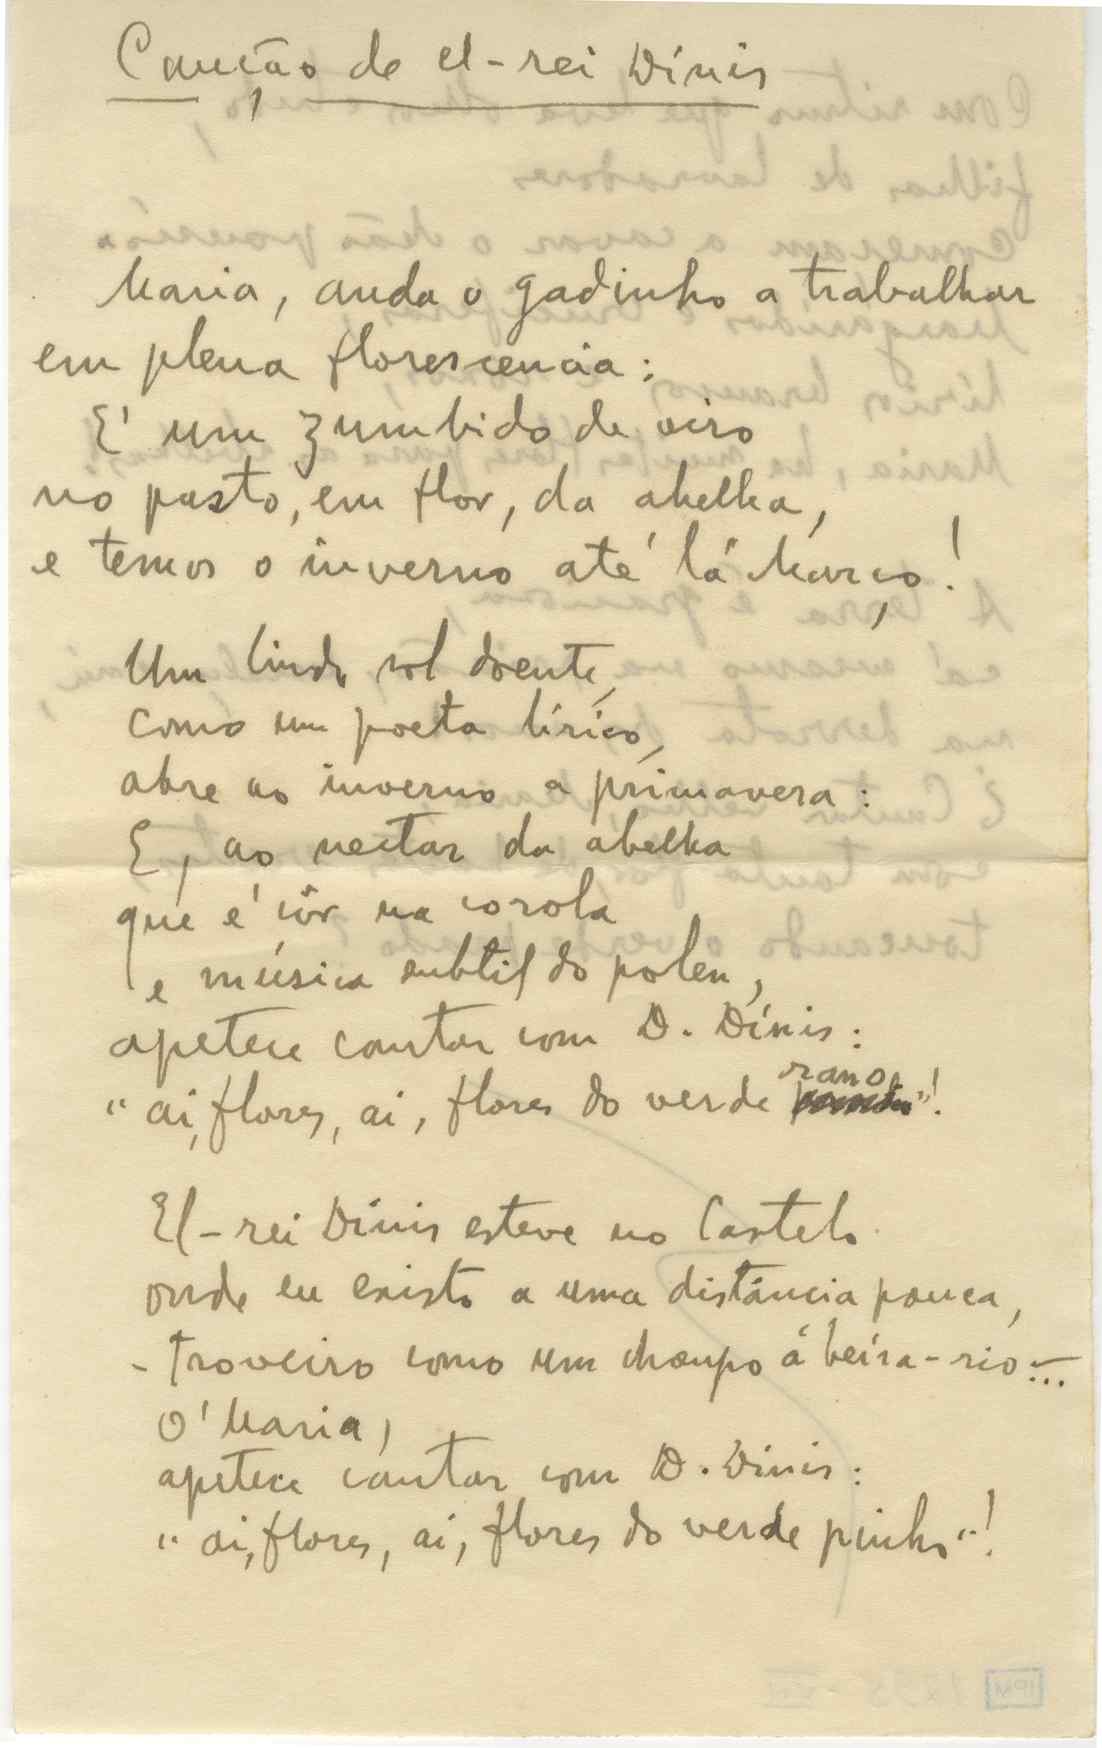 Canção de el-rei Dínis
Maria, anda o gadinho a trabalhar
em plena florescencia:
E' um zumbido de oiro
no pasto, em flor, da abelha,
e temos o inverno até lá Março!
Um lindo sol doente,
como um poeta lírico,
abre ao inverno a primavera:
E, ao nectar da abelha
que é côr na corola
e música subtil do polen,
apetece cantar com D. Dínis:
"ai, flores, ai, flores do verde ramo"!
El-rei Dínis esteve no Castelo
onde eu existo a uma distância pouca,
- troveiro como um choupo á beira-rio...
O' Maria,
apetece cantar com D. Dinis:
"ai, flores, ai, flores do verde pinho"!